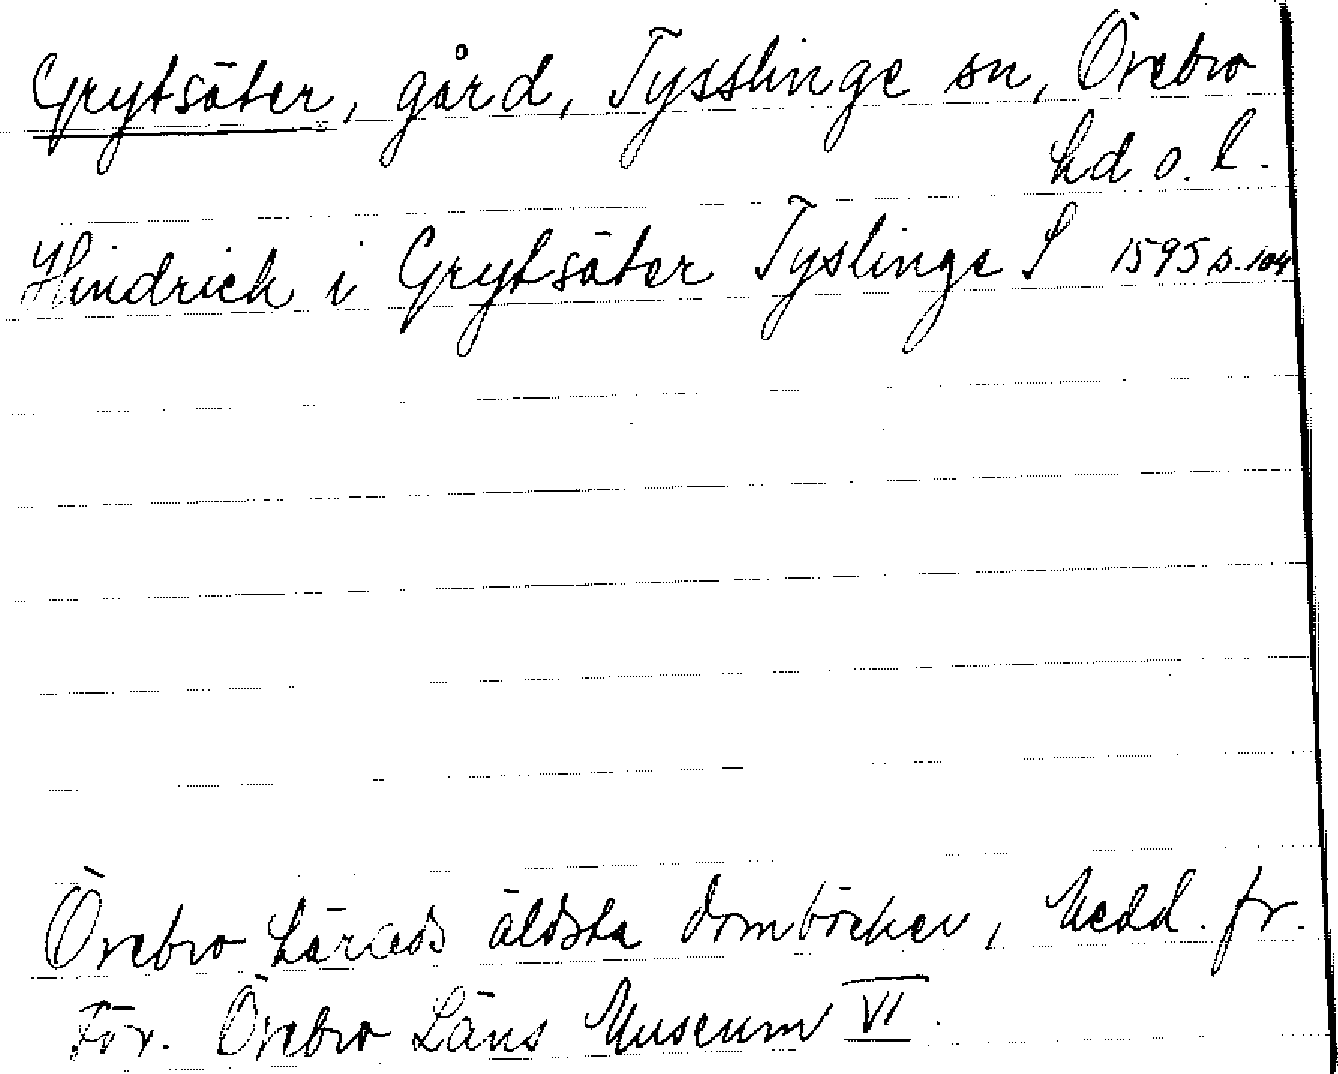 Grytsäter, gård, Tysslinge sn, Örebro
hd o. l.
Hindrich i Grytsäter Tyslinge S 1595 s. 104
Örebro härads äldsta domböcker, Medd. fr.
För. Örebro Läns Museum VI.